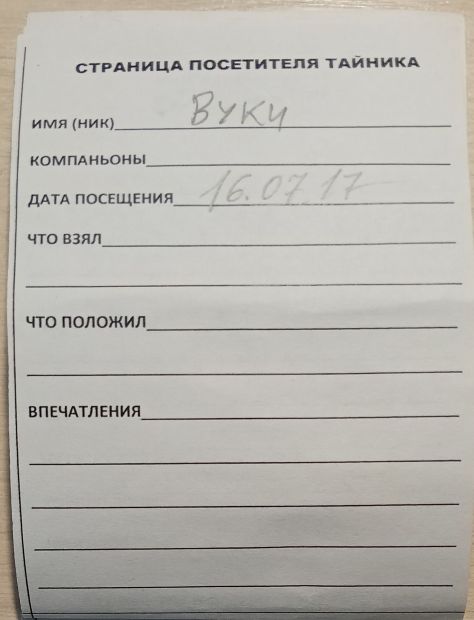 СТРАНИЦА ПОСЕТИТЕЛЯ ТАЙНИКА
ИМЯ (НИК) Вуки
КОМПАНЬОНЫ
ДАТА ПОСЕЩЕНИЯ 16.07.17
ЧТО ВЗЯЛ
ЧТО ПОЛОЖИЛ
ВПЕЧАТЛЕНИЯ